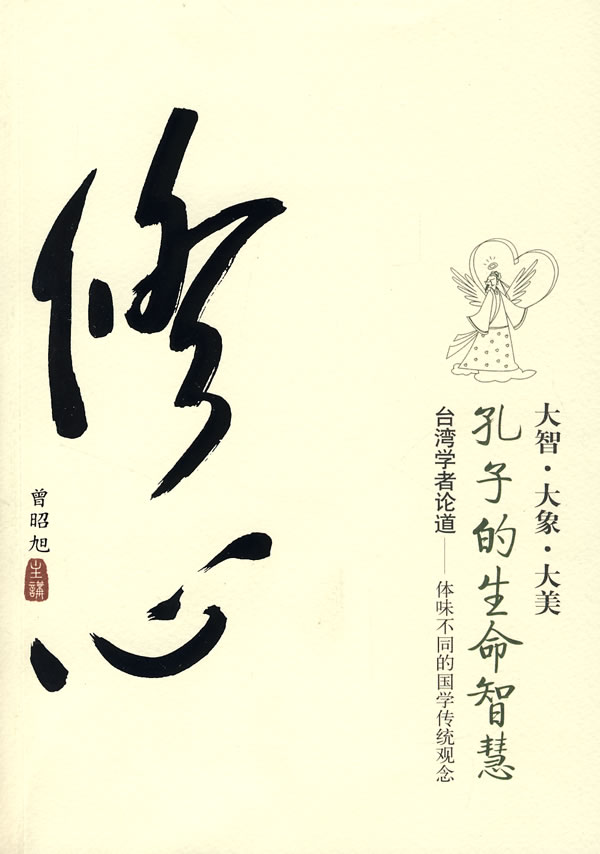 大智·大象·大美
孔子的生命智慧
台湾学者论道——体味不同的国学传统观念
修心
曾昭旭
主講